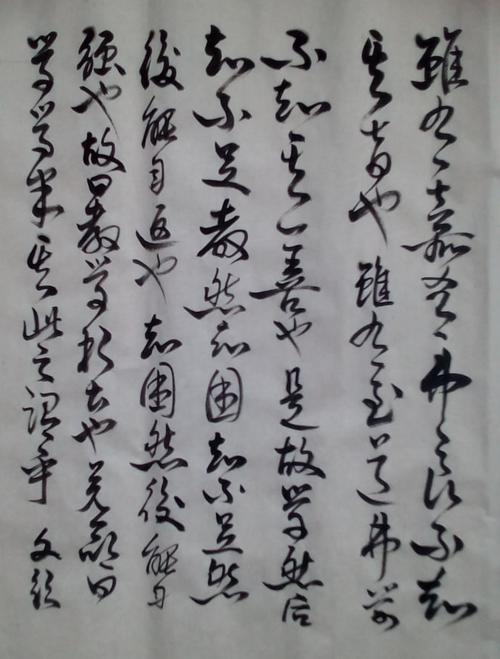 雖有嘉肴弗食不知
其旨也雖有至道弗學
不知其善也是故學然后
知不足教然知困知不足然
後能自返也知困然後能自
強也故曰教學相長也兑命曰
學學半其此之謂乎 文